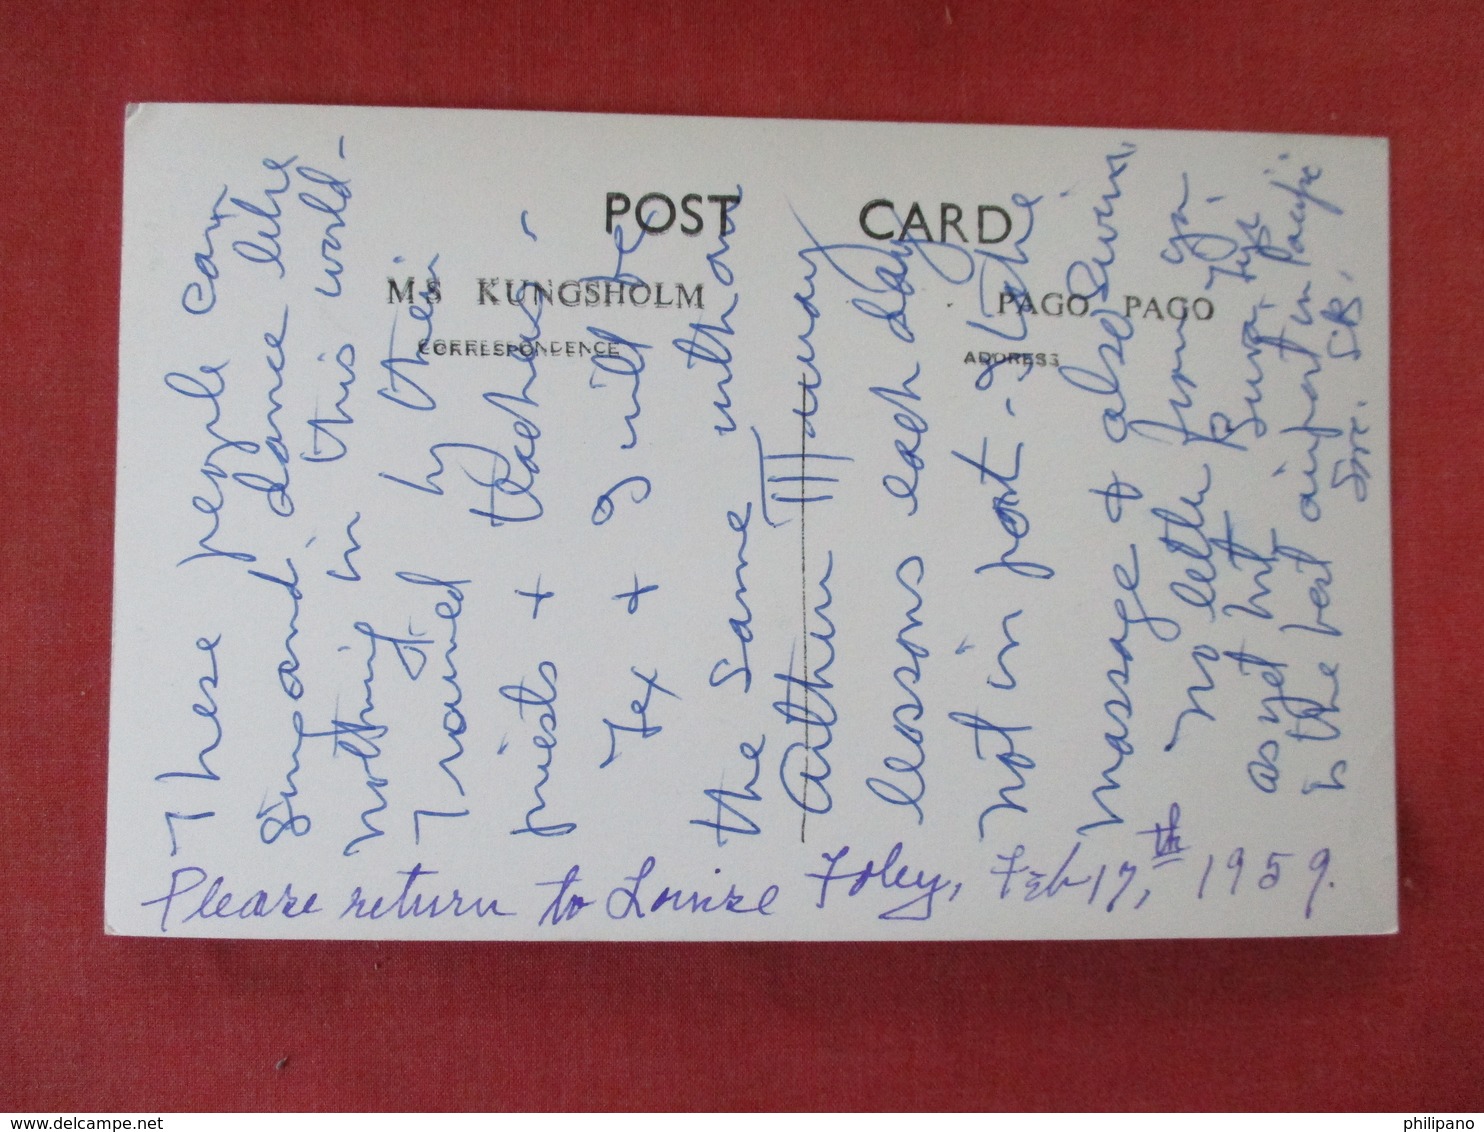 POST CARD
MS KUNGSHOLM PAGO PAGO
CORRESPONDENCE ADDRESS
These people can
sing and dance like
nothing in this world-
Trained by their
priests + teachers-
Tex + I will be
the same with our
Arthur Murray
lessons each day
not in port- I take
massage & also swim.
No letter from ya
as yet but
is the best airport in Pacific
Please return to Louise Foley, Feb 17,th 1959.
delcampe.net
philipano